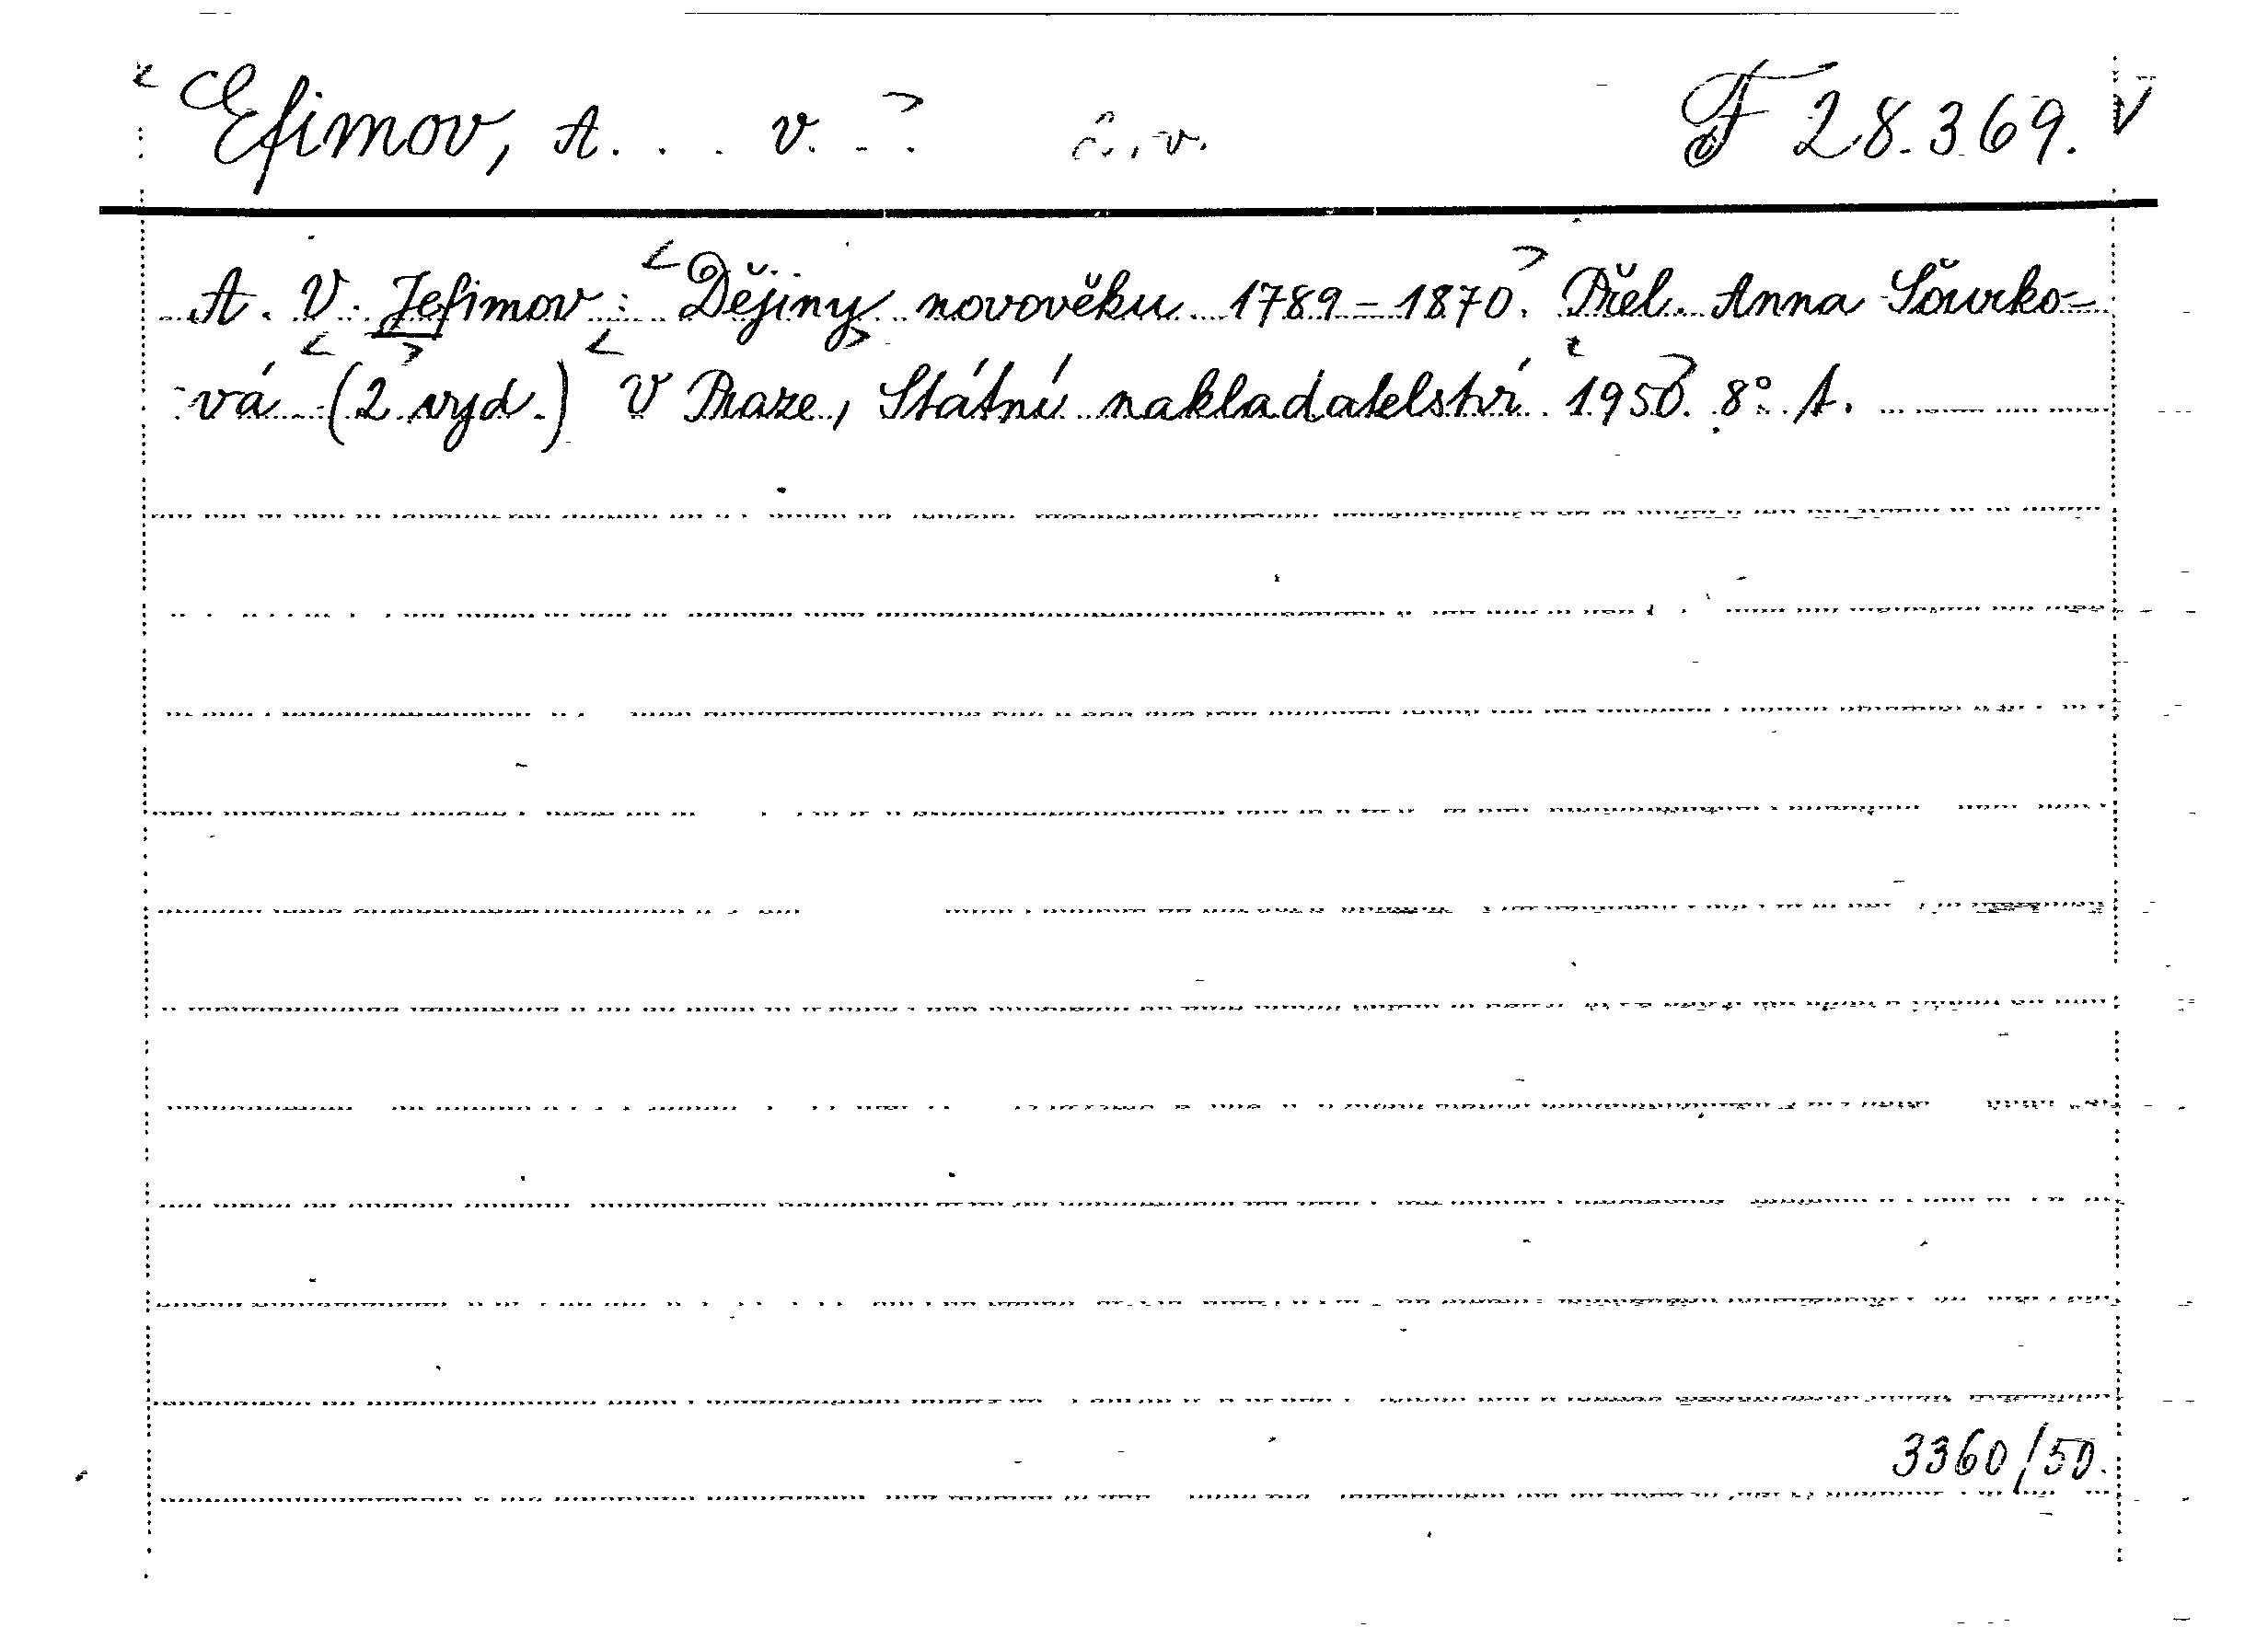 Efimov, A... V... č. v. F 28.369. V
A. V. Jefimov: Dějiny novověku 1789-1870. Přel. Anna Šourko-
vá (2 vyd.) V Praze, Státní nakladatelství 1950. 8° A.
3360/50.